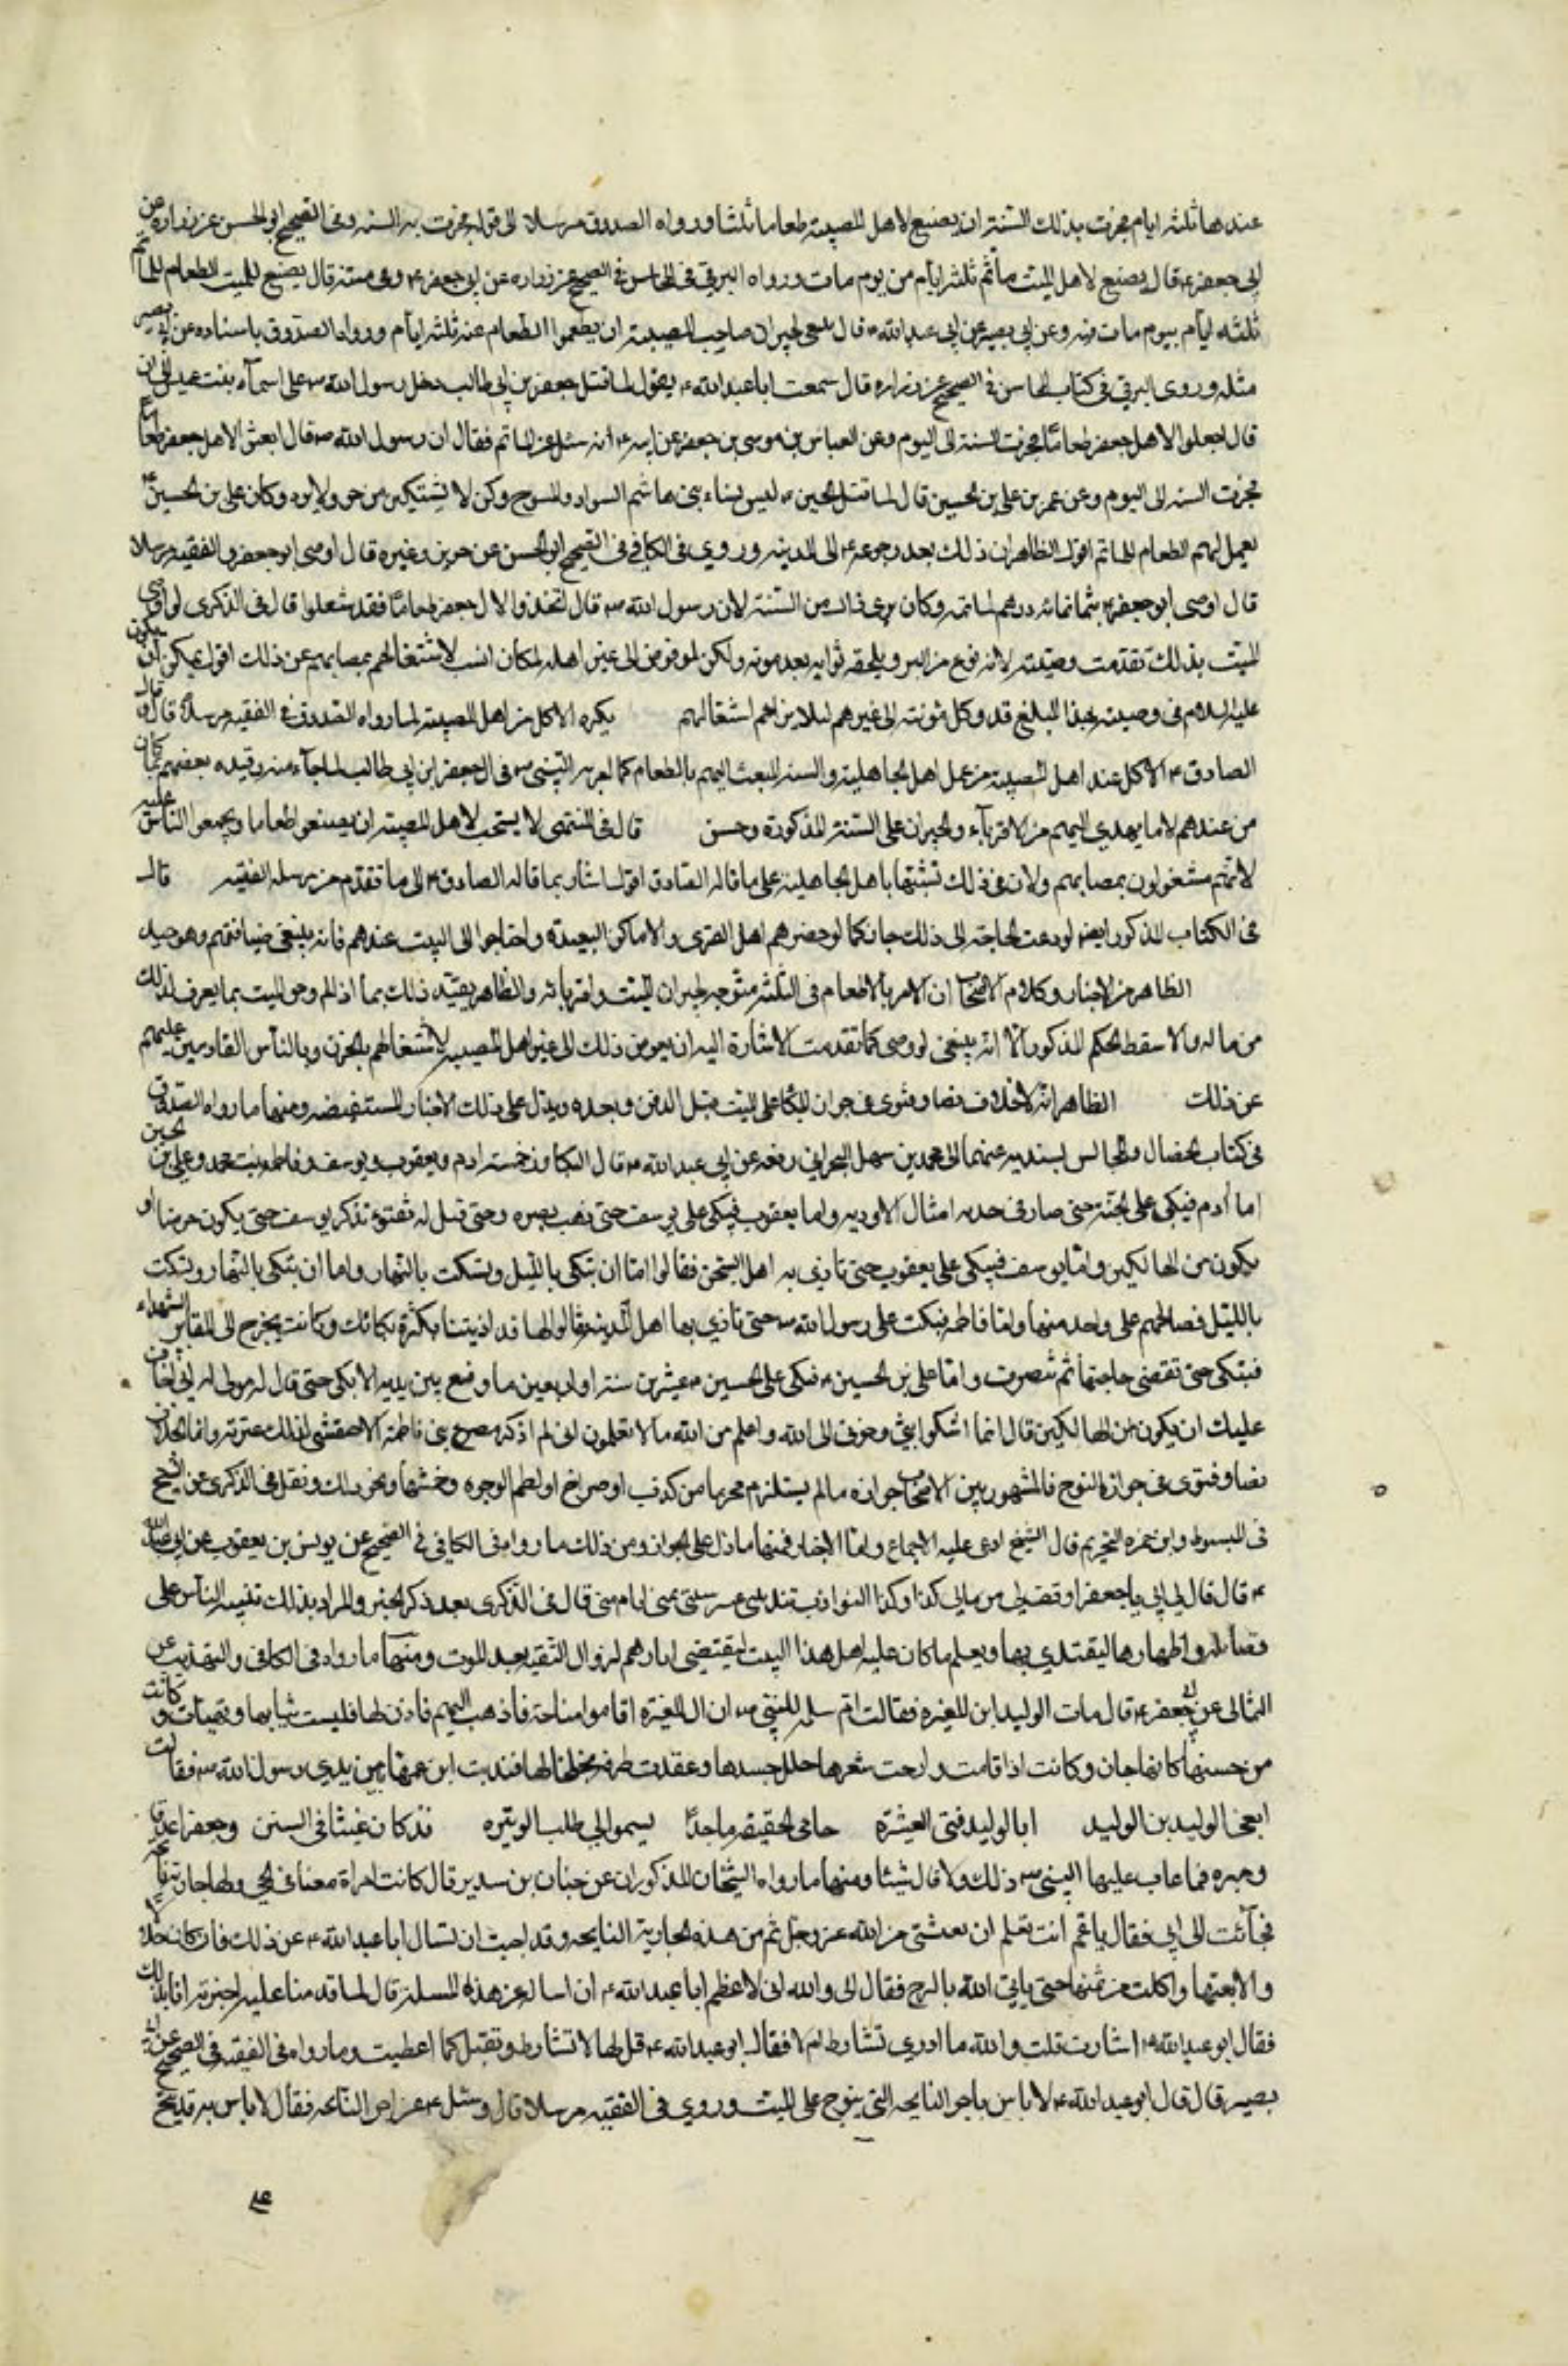 عندها ثلثه ايام فجرت بذلك السنة ان يصنع لاهل المصيبة طعاما ثلثا ورواه الصدوق مرسلا الى قوله فجرت به السنه وفى الصحيح او الحسن عن زراره عن
ابى جعفر ع قال يصنع لاهل الميت مأتم ثلثة ايام من يوم مات ورواه البرقى فى المحاسن فى الصحيح عن زراره عن ابى جعفر ع وفى متنه قال يصنع للميت الطعام للمأتم
ثلثه ايام بيوم مات فيه وعن ابى بصير عن ابى عبد الله ع قال ينبغى لجيران صاحب المصيبة ان يطعموا الطعام عنه ثلثة ايام ورواه الصدوق باسناده عن ابى بصير
مثله وروى البرقى فى كتاب المحاسن فى الصحيح عن زراره قال سمعت ابا عبد الله ع يقول لما قتل جعفر بن ابى طالب دخل رسول الله ص على اسمآء بنت عميس الى ان
قال اجعلوا لاهل جعفر طعامًا فجرت السنة الى اليوم وعن العباس بن موسى بن جعفر عن ابيه ع انه سئل عن المأتم فقال ان رسول الله ص قال ابعثوا لاهل جعفر طعاما
فجرت السنه الى اليوم وعن عمر بن على بن الحسين قال لما قتل الحسين ع لبس نساء بنى هاشم السواد والمسوح وكن لا يشتكين من حر ولا برد وكان على بن الحسين ع
يعمل لهم الطعام للماتم اقول الظاهر ان ذلك بعد رجوعه ع الى المدينه وروى فى الكافى فى الصحيح او الحسن عن حريز وغيره قال اوصى ابو جعفر وفى الفقيه مرسلا
قال اوصى ابو جعفر ع بثمانمائه درهم لمأتمه وكان يرى ذلك من السنة لان رسول الله ص قال اتخذوا لال جعفر طعامًا فقد شغلوا قال فى الذكرى لو اوصى
الميت بذلك تقدمت وصيته لانه نوع من البر ويلحقه ثوابه بعد موته ولكن لو فوض الى غير اهله لكان انسب لاشتغالهم بمصابهم عن ذلك اقول يمكن ان يكون
عليه السلام فى وصيته بهذا المبلغ قد وكل مؤنته الى غيرهم لئلا يزاحم اشتغالهم يكره الاكل من اهل المصيبة لما رواه الصدوق فى الفقيه مرسلا قال قال
الصادق ع الاكل عند اهل المصيبة من عمل اهل الجاهلية والسنه البعث اليهم بالطعام كما امر به النبى ص فى ال جعفر ابن ابى طالب لما جآء نعيه وقيده بعضهم بما كان
من عندهم لا ما يهدى اليهم من الاقربآء والجيران على السنة المذكورة وحسن قال فى المنتهى لا يستحب لاهل المصيبة ان يصنعوا طعاما ويجمعوا الناس عليه
لانهم مشغولون بمصابهم ولان فى ذلك تشبها باهل الجاهلية على ما قاله الصادق اقول اشار بما قاله الصادق ع الى ما تقدم من مرسلة الفقيه قال
فى الكتاب المذكور ايض لو دعت الحاجة الى ذلك جاز كما لو حضرهم اهل القرى والاماكن البعيدة واحتاجوا الى المبيت عندهم فانه ينبغى ضيافتهم وهو جيد
الظاهر من الاخبار وكلام الاصحاب ان الامر بالاطعام فى الثلثة متوجه لجيران الميت واقربائه والظاهر تقييد ذلك بما اذا لم يوص الميت بما يعرف لذلك
من ماله والا سقط الحكم المذكور الا انه ينبغى لو وصى كما تقدمت الاشارة اليه ان يفوض ذلك الى غير اهل المصيبه لاشتغالهم بالحزن وبالناس القادمين عليهم
عن ذلك الظاهر انه لا خلاف نصا وفتوى فى جواز البكا على الميت قبل الدفن وبعده ويدل على ذلك الاخبار المستفيضه ومنها ما رواه الصدوق
فى كتاب الخصال والمجالس بسنديه عنهما الى محمد بن سهل البحرانى رفعه عن ابى عبد الله ع قال البكاؤن خمسة ادم ويعقوب ويوسف وفاطمه بنت محمد وعلى بن الحسين
اما ادم فبكى على الجنة حتى صار فى خديه امثال الاوديه واما يعقوب فبكى على يوسف حتى ذهب بصره وحتى قيل له تفتوء تذكر يوسف حتى تكون حرضا او
تكون من الهالكين واما يوسف فبكى على يعقوب حتى تاذى به اهل السجن فقالوا اما ان تبكى بالليل وتسكت بالنهار واما ان تبكى بالنهار وتسكت
بالليل فصالحهم على واحد منهما واما فاطمه فبكت على رسول الله ص حتى تاذى بها اهل المدينه فقالوا لها قد اذيتنا بكثرة بكائك وكانت تخرج الى مقابر الشهداء
فتبكى حتى تقضى حاجتها ثم تنصرف واما على بن الحسين ع فبكى على الحسين ع عشرين سنة او اربعين ما وضع بين يديه الا بكى حتى قال له مولى له انى اخاف
عليك ان تكون من الهالكين قال انما اشكوا بثى وحزنى الى الله واعلم من الله ما لا تعلمون انى لم اذكر مصرع بنى فاطمة الا خنقتنى لذلك عبرة
نصا وفتوى فى جواز النوح فالمشهور بين الاصحاب جوازه ما لم يستلزم محرما من كذب او صراخ او لطم الوجوه وخمشها ونحو ذلك ونقل فى الذكرى عن الشيخ
فى المبسوط وابن حمزه التحريم قال الشيخ ادعى عليه الاجماع واما الاخبار فمنها ما دل على الجواز ومن ذلك ما رواه فى الكافى فى الصحيح عن يونس بن يعقوب عن ابى عبد الله
ع قال قال لى ابى يا جعفر اوقف لى من مالى كذا وكذا النوادب تندبنى عشر سنين بمنى ايام منى قال فى الذكرى بعد ذكر الخبر والمراد بذلك تنبيه الناس على
فضائله واظهارها ليقتدى بها ويعلم ما كان عليه اهل هذا البيت ليقتفى اثارهم لزوال التقيه بعد الموت ومنها ما رواه فى الكافى والتهذيب عن
الثمالى عن ابى جعفر ع قال مات الوليد ابن المغيره فقالت ام سلمه للنبى ص ان ال المغيره اقاموا مناحة فاذهب اليهم فاذن لها فلبست ثيابها وتهيأت وكانت
من حسنها كانها جان وكانت اذا قامت وارخت شعرها جلل جسدها وعقدت طرفه بخلخالها فندبت ابن عمها بين يدى رسول الله ص فقالت
انعى الوليد بن الوليد ابا الوليد فتى العشيرة حامى الحقيقه ماجدًا يسموا الى طلب الوتيره قد كان غيثا فى السنين وجعفرا غدقا
وميره فما عاب عليها النبى ص ذلك ولا قال شيئا ومنها ما رواه الشيخان المذكوران عن حنان بن سدير قال كانت امراة معنا فى الحى ولها جارية نائحه
فجآئت الى ابى فقال يا عم انت تعلم ان معيشتى من الله عز وجل ثم من هذه الجارية النايحه وقد احببت ان تسال ابا عبد الله ع عن ذلك فان كان حلالا
والا بعتها واكلت من ثمنها حتى ياتى الله بالفرج فقال ابى والله انى لاعظم ابا عبد الله ع ان اساله عن هذه المسئلة قال لما قدمنا عليه اخبرته انا بذلك
فقال ابو عبد الله ع اتشارط قلت والله ما ادرى تشارط ام لا فقال ابو عبد الله ع قل لها لا تشارط وتقبل كلما اعطيت وما رواه فى الفقيه فى الصحيح عن ابى
بصير قال قال ابو عبد الله ع لا باس باجر النايحه التى تنوح على الميت وروى فى الفقيه مرسلا قال وسئل ع عن اجر النائحه فقال لا باس به قد نيح